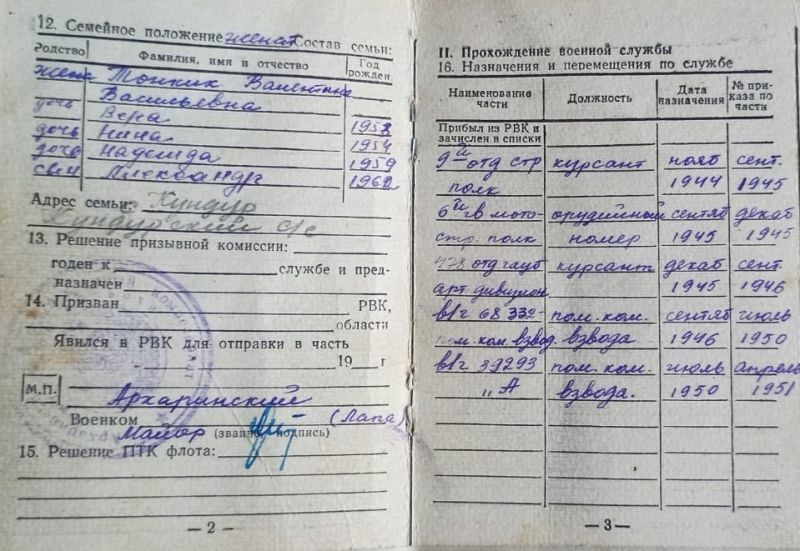 12. Семейное положение женат Состав семьи:
Родство Фамилия, имя и отчество Год рожден.
жена Тонких Валентина
Васильевна
дочь Вера 1953
дочь Нина 1954
дочь Надежда 1959
сын Александр 1962
Адрес семьи: Хундур
Хундурский с/с
13. Решение призывной комиссии:
годен к службе и пред-
назначен
14. Призван РВК,
области
Явился в РВК для отправки в часть
19 г.
М.П. Архаринский
Военком (Лапа)
майор (звание, подпись)
15. Решение ПТК флота:
— 2 —
II. Прохождение военной службы
16. Назначения и перемещения по службе
Наименование части Должность Дата назначения № при-каза по части
Прибыл из РВК и
зачислен в списки
9й отд стр курсант нояб сент.
полк 1944 1945
6й гв мото- орудийный сентяб декаб
стр. полк номер 1945 1945
478 отд гауб курсант декаб сент.
арт дивизион 1945 1946
в/г 68332- пом. ком. сентяб июль
пом. ком взвод. взвода 1946 1950
в/г 39293 пом. ком. июль апрель
"А взвода. 1950 1951
— 3 —